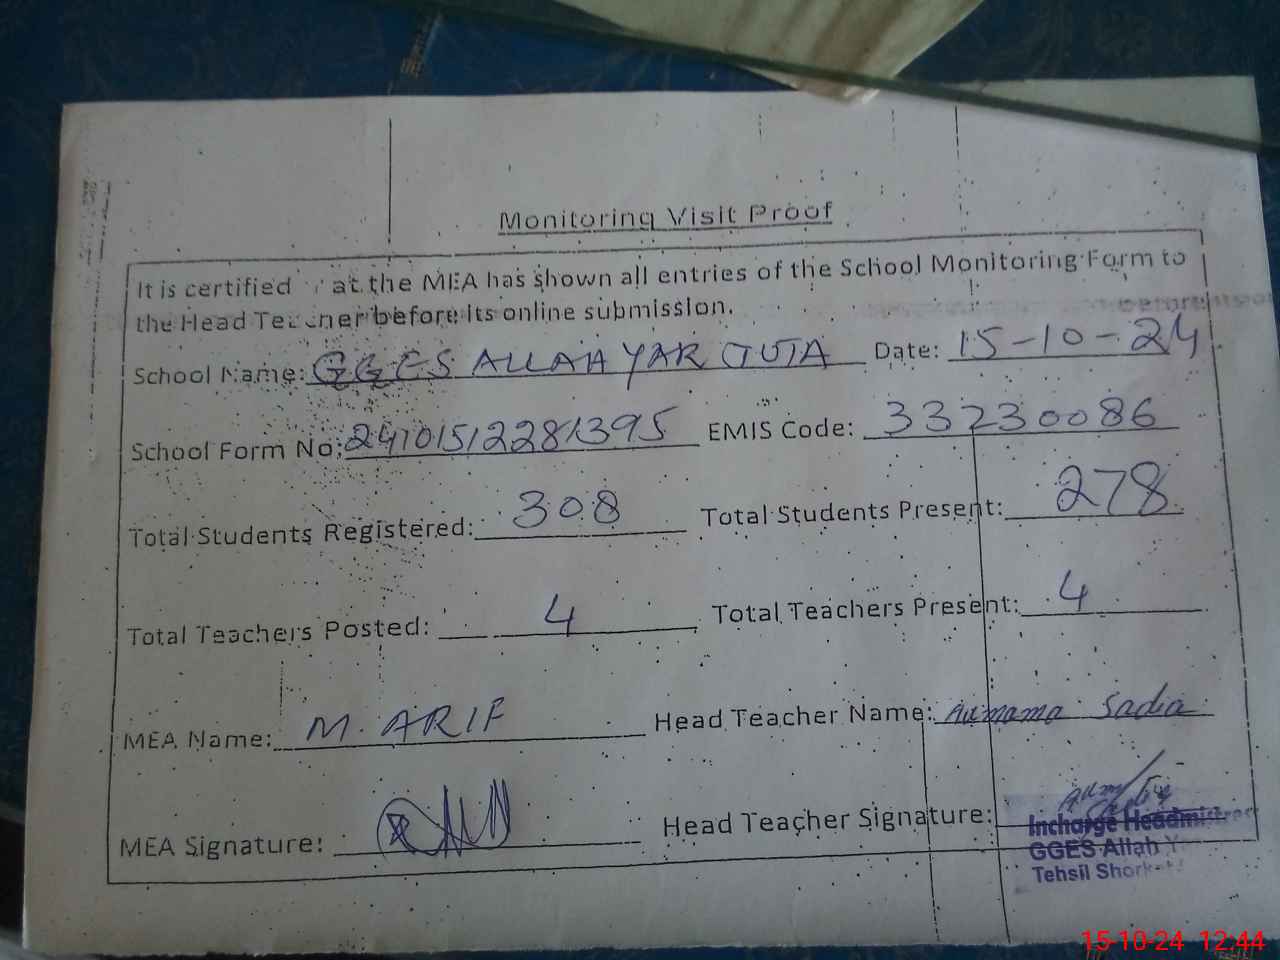 Monitoring Visit Proof
It is certified at the MEA has shown all entries of the School Monitoring Form to
the Head Teacher before its online submission.
School Name: GGES ALLAH YAR JUTA Date: 15-10-24
School Form No: 241015122281395 EMIS Code: 33230086
Total Students Registered: 308 Total Students Present: 278
Total Teachers Posted: 4 Total Teachers Present: 4
MEA Name: M. ARIF Head Teacher Name: Aumama Sadia
MEA Signature: Head Teacher Signature:
Incharge Headmistress
GGES Allah
Tehsil
15-10-24 12:44